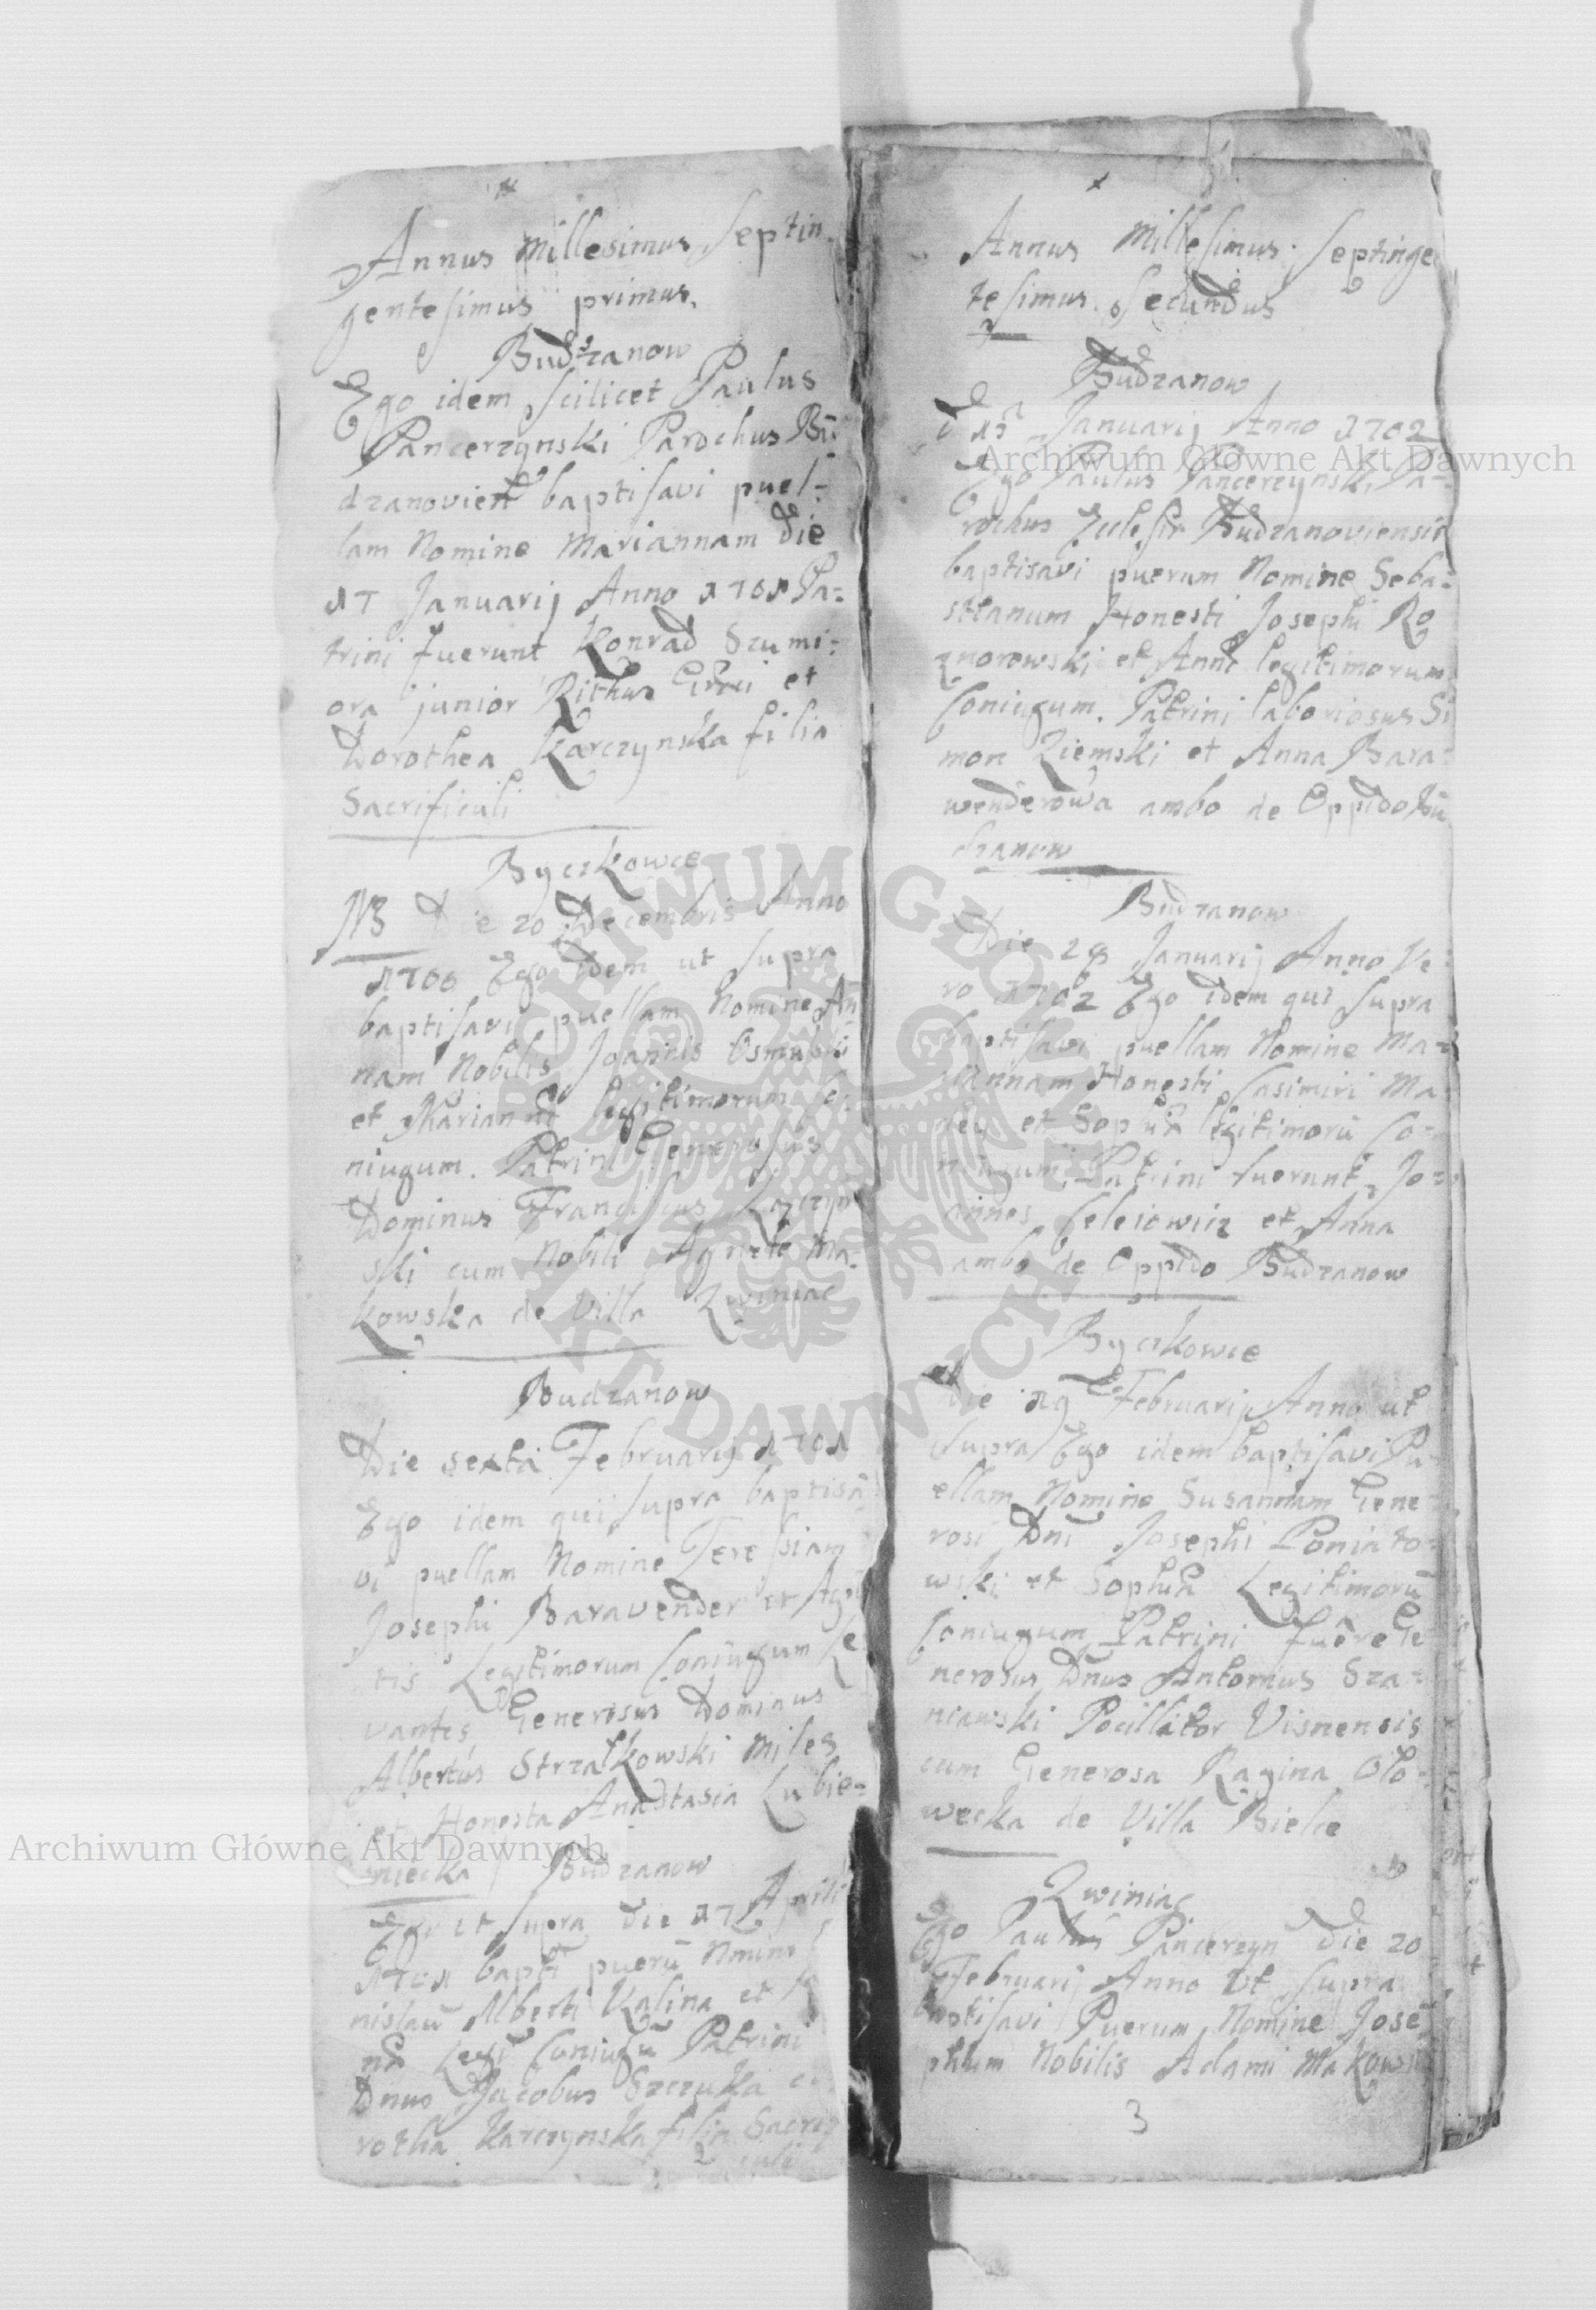 Annus Millesimus Septin
gentesimus primus.
Budzanow
Ego idem scilicet Paulus
Pancerzynski Parochus Bu-
dzanovien baptisavi puel-
lam Nomine Mariannam Die
17 Januarij Anno 1701 Pa-
trini fuerunt Konrad Szumi-
ora junior Rithus Grci et
Dorothea Karczynska filia
Sacrificuli
Byczkowce
NB Die 20 Decembris Anno
1700 Ego Idem ut supra
baptisavi puellam Nomine An
nam Nobilis Joannis
et Mariannæ legitimorum Co-
niugum. Patrini Generosus
Dominus Franciscus
ski cum Nobili Agnete Ma-
kowska de Villa Zwiniac
Budzanow
Die sexta Februarij 1701
Ego idem qui supra baptisa
vi puellam Nomine Teressiam
Josephi Baravender et Agn
tis Legitimorum Coniugum Le
vantes Generosus Dominus
Albertus Strzalkowski Miles
et Honesta Anastasia Lubie-
niecka Budzanow
Ego ut supra Die 17 Aprili
1701 bapti puerū Nomine
nislaū Alberti Kalina et
næ Legi Coniugū Patrini
Dnus Jacobus Szczuka
rothea Karczynska filia Sacrifi
culi
2
Annus Millesimus Septinge
tesimus Secundus
Budzanow
D 15 Januarij Anno 1702
Ego Paulus Pancerzynski Pa-
rochus Ecclesiæ Budzanoviensis
baptisavi puerum Nomine Seba-
stianum Honesti Josephi Ro
znorowski et Annæ legitimorum
Coniugum. Patrini laboriosus Si
mon Ziemski et Anna Bara-
wenderowa ambo de Oppido Bu
dzanow
Budzanow
Die 28 Januarij Anno Ve-
ro 1702 Ego idem qui supra
baptisavi puellam Nomine Ma-
riannam Honesti Casimiri Ma-
et Sophiæ legitimorū Co-
niugum, Patrini fuerunt Jo-
annes Celeiowicz et Anna
ambo de Oppido Budzanow
Byczkowce
Die 19 Februarij Anno ut
supra Ego idem baptisavi Pu-
ellam Nomine Susannam Gene
rosi Dni Josephi Poniato-
wski et Sophiæ Legitimorū
Coniugum Patrini fuere Ge
nerosus Dnus Antonius Sza-
niawski Pocillator Visnensis
cum Generosa Regina Olo-
wecka de Villa Bielce
Zwiniac
Ego Paulus Pancerzyn Die 20
Februarij Anno Ut supra
baptisavi Puerum Nomine Jose
phum Nobilis Adami Makowsk
3
Archiwum Główne Akt Dawnych
Archiwum Główne Akt Dawnych
ARCHIWUM GŁÓWNE
AKT DAWNYCH